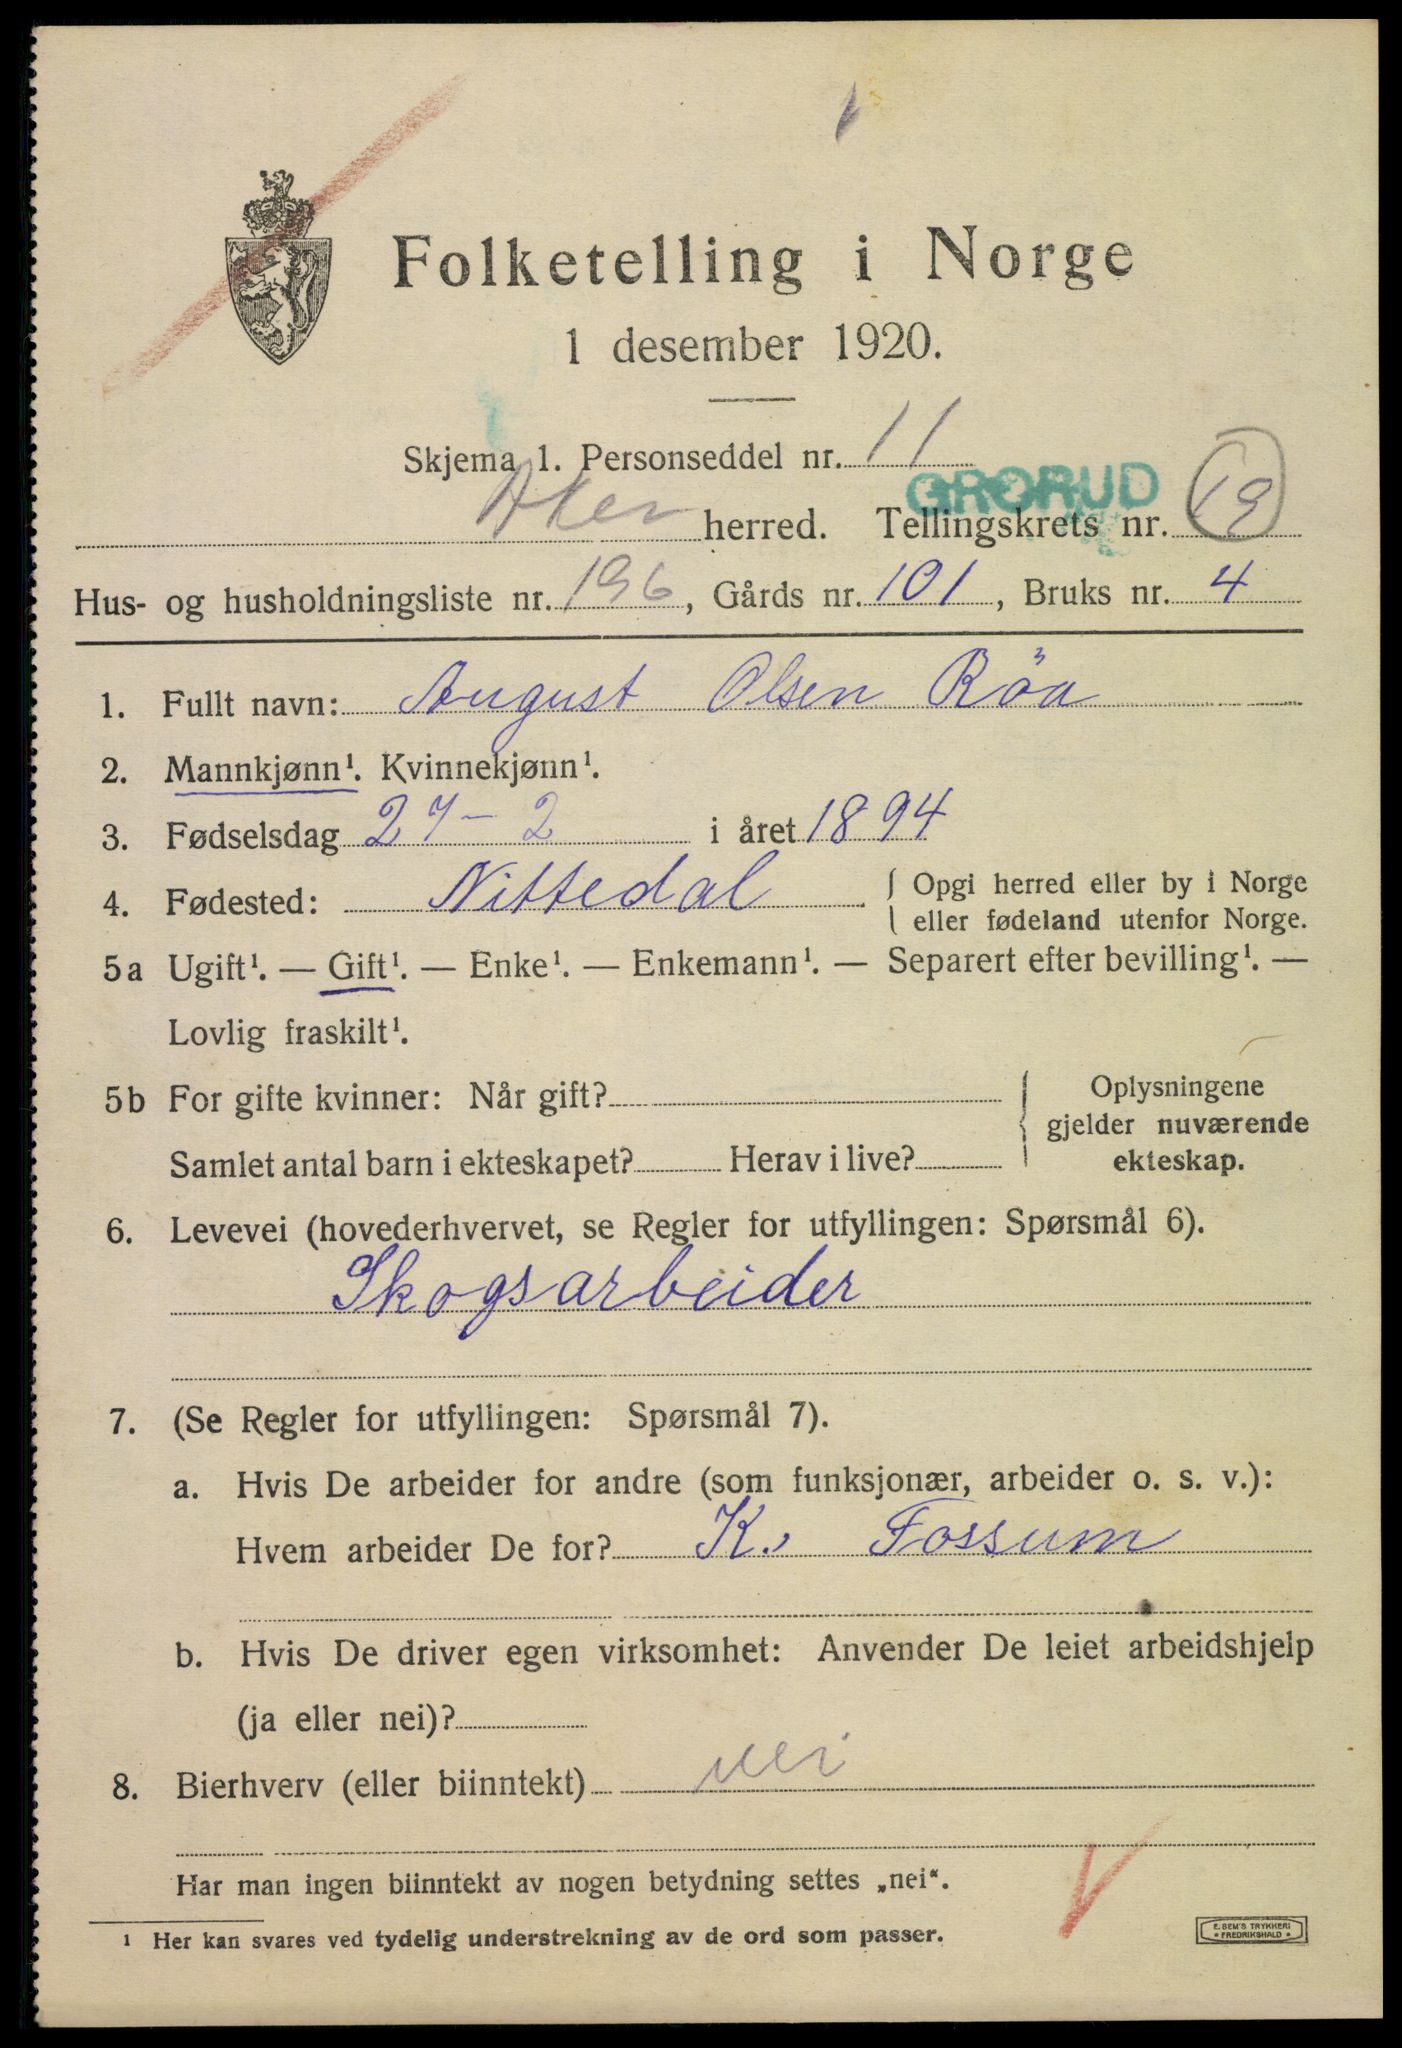 Folketelling i Norge
1 desember 1920.
Skjema 1. Personseddel nr. 11
GRORUD
Aker herred. Tellingskrets nr. 19
Hus- og husholdningsliste nr. 196, Gårds nr. 101, Bruks nr. 4
1. Fullt navn: August Olsen Röa
2. Mannkjønn¹. Kvinnekjønn¹.
3. Fødselsdag 27-2 i året 1894
4. Fødested: Nittedal. { Opgi herred eller by i Norge
eller fødeland utenfor Norge.
5a Ugift¹. — Gift¹. — Enke¹. — Enkemann¹. — Separert efter bevilling¹. —
Lovlig fraskilt¹.
5b For gifte kvinner: Når gift?
Samlet antal barn i ekteskapet? Herav i live?
{ Oplysningene
gjelder nuværende
ekteskap.
6. Levevei (hovederhvervet, se Regler for utfyllingen: Spørsmål 6).
Skogsarbeider
7. (Se Regler for utfyllingen: Spørsmål 7).
a. Hvis De arbeider for andre (som funksjonær, arbeider o. s. v.):
Hvem arbeider De for? K. Fossum
b. Hvis De driver egen virksomhet: Anvender De leiet arbeidshjelp
(ja eller nei)?
8. Bierhverv (eller biinntekt) nei
Har man ingen biinntekt av nogen betydning settes „nei“.
¹ Her kan svares ved tydelig understrekning av de ord som passer.
E. SEM'S TRYKKERI
* FREDRIKSHALD *